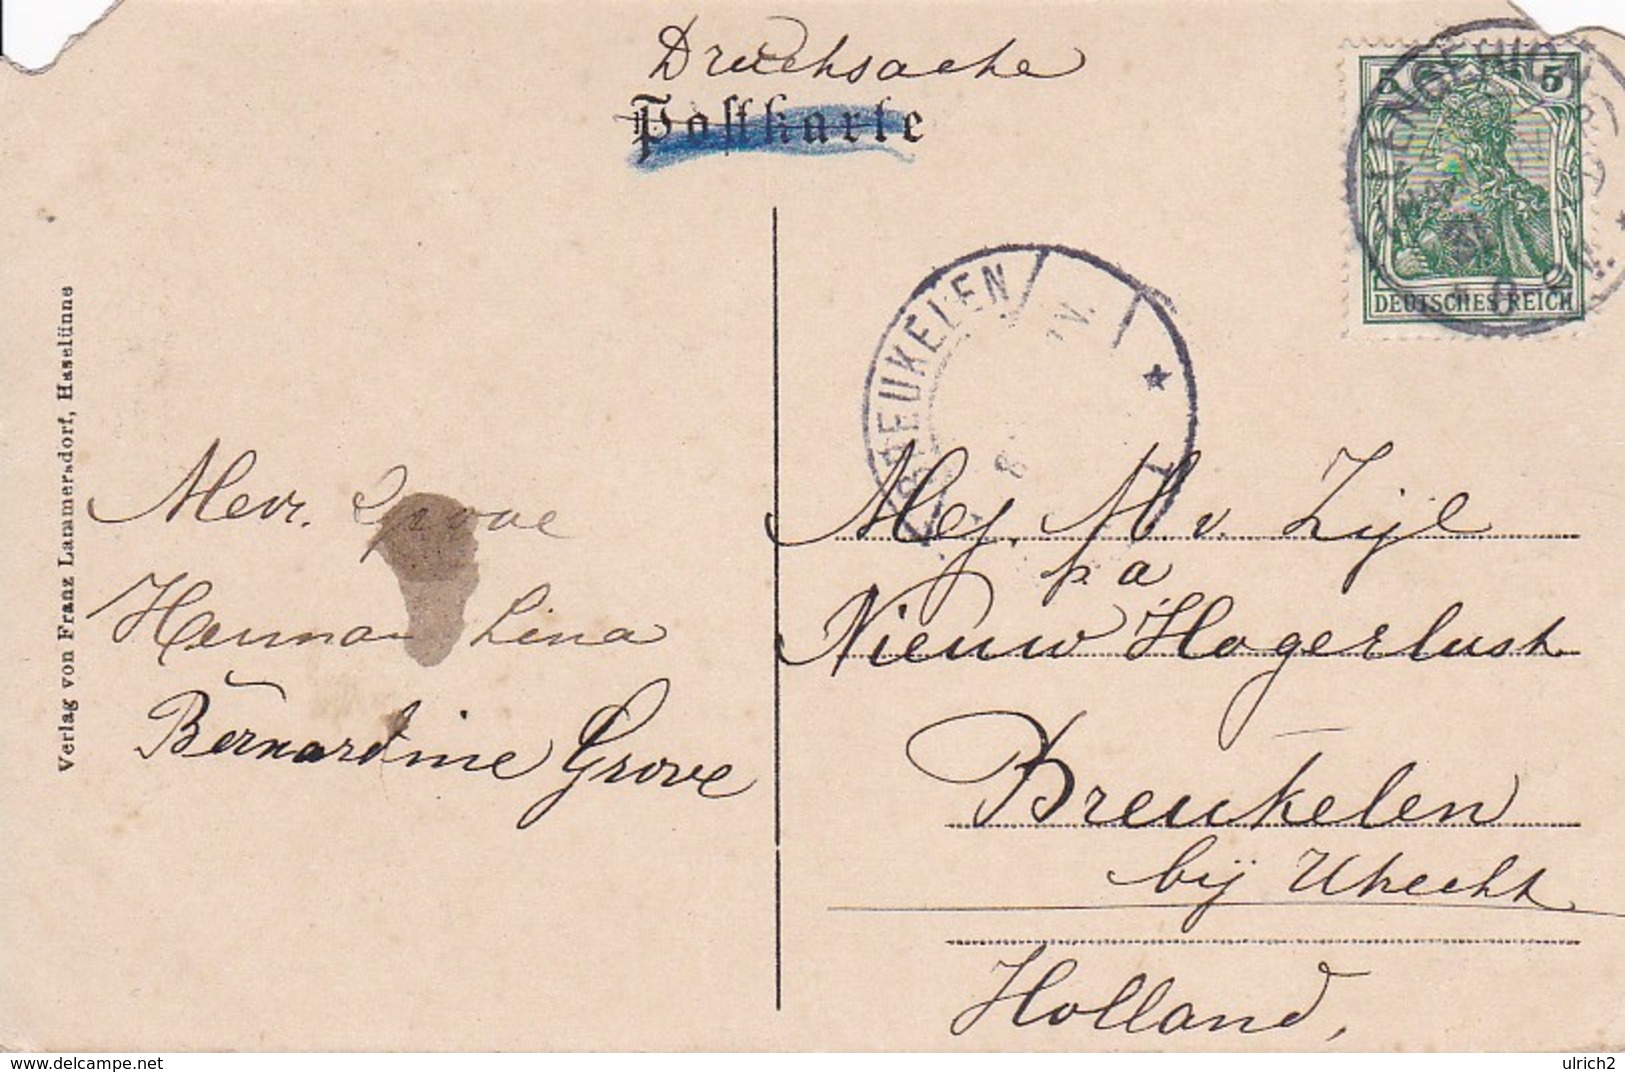 Drucksache
Postkarte
5 5
DEUTSCHES REICH
LENGERICH
BREUKELEN
Verlag von Franz Lammersdorf, Haselünne
Mevr. Grove
Herman Lina
Bernardine Grove
Mej. M. v. Zijl
p a
Nieuw Hogerlust
Breukelen
bij Utrecht
Holland,
www.delcampe.net
ulrich2